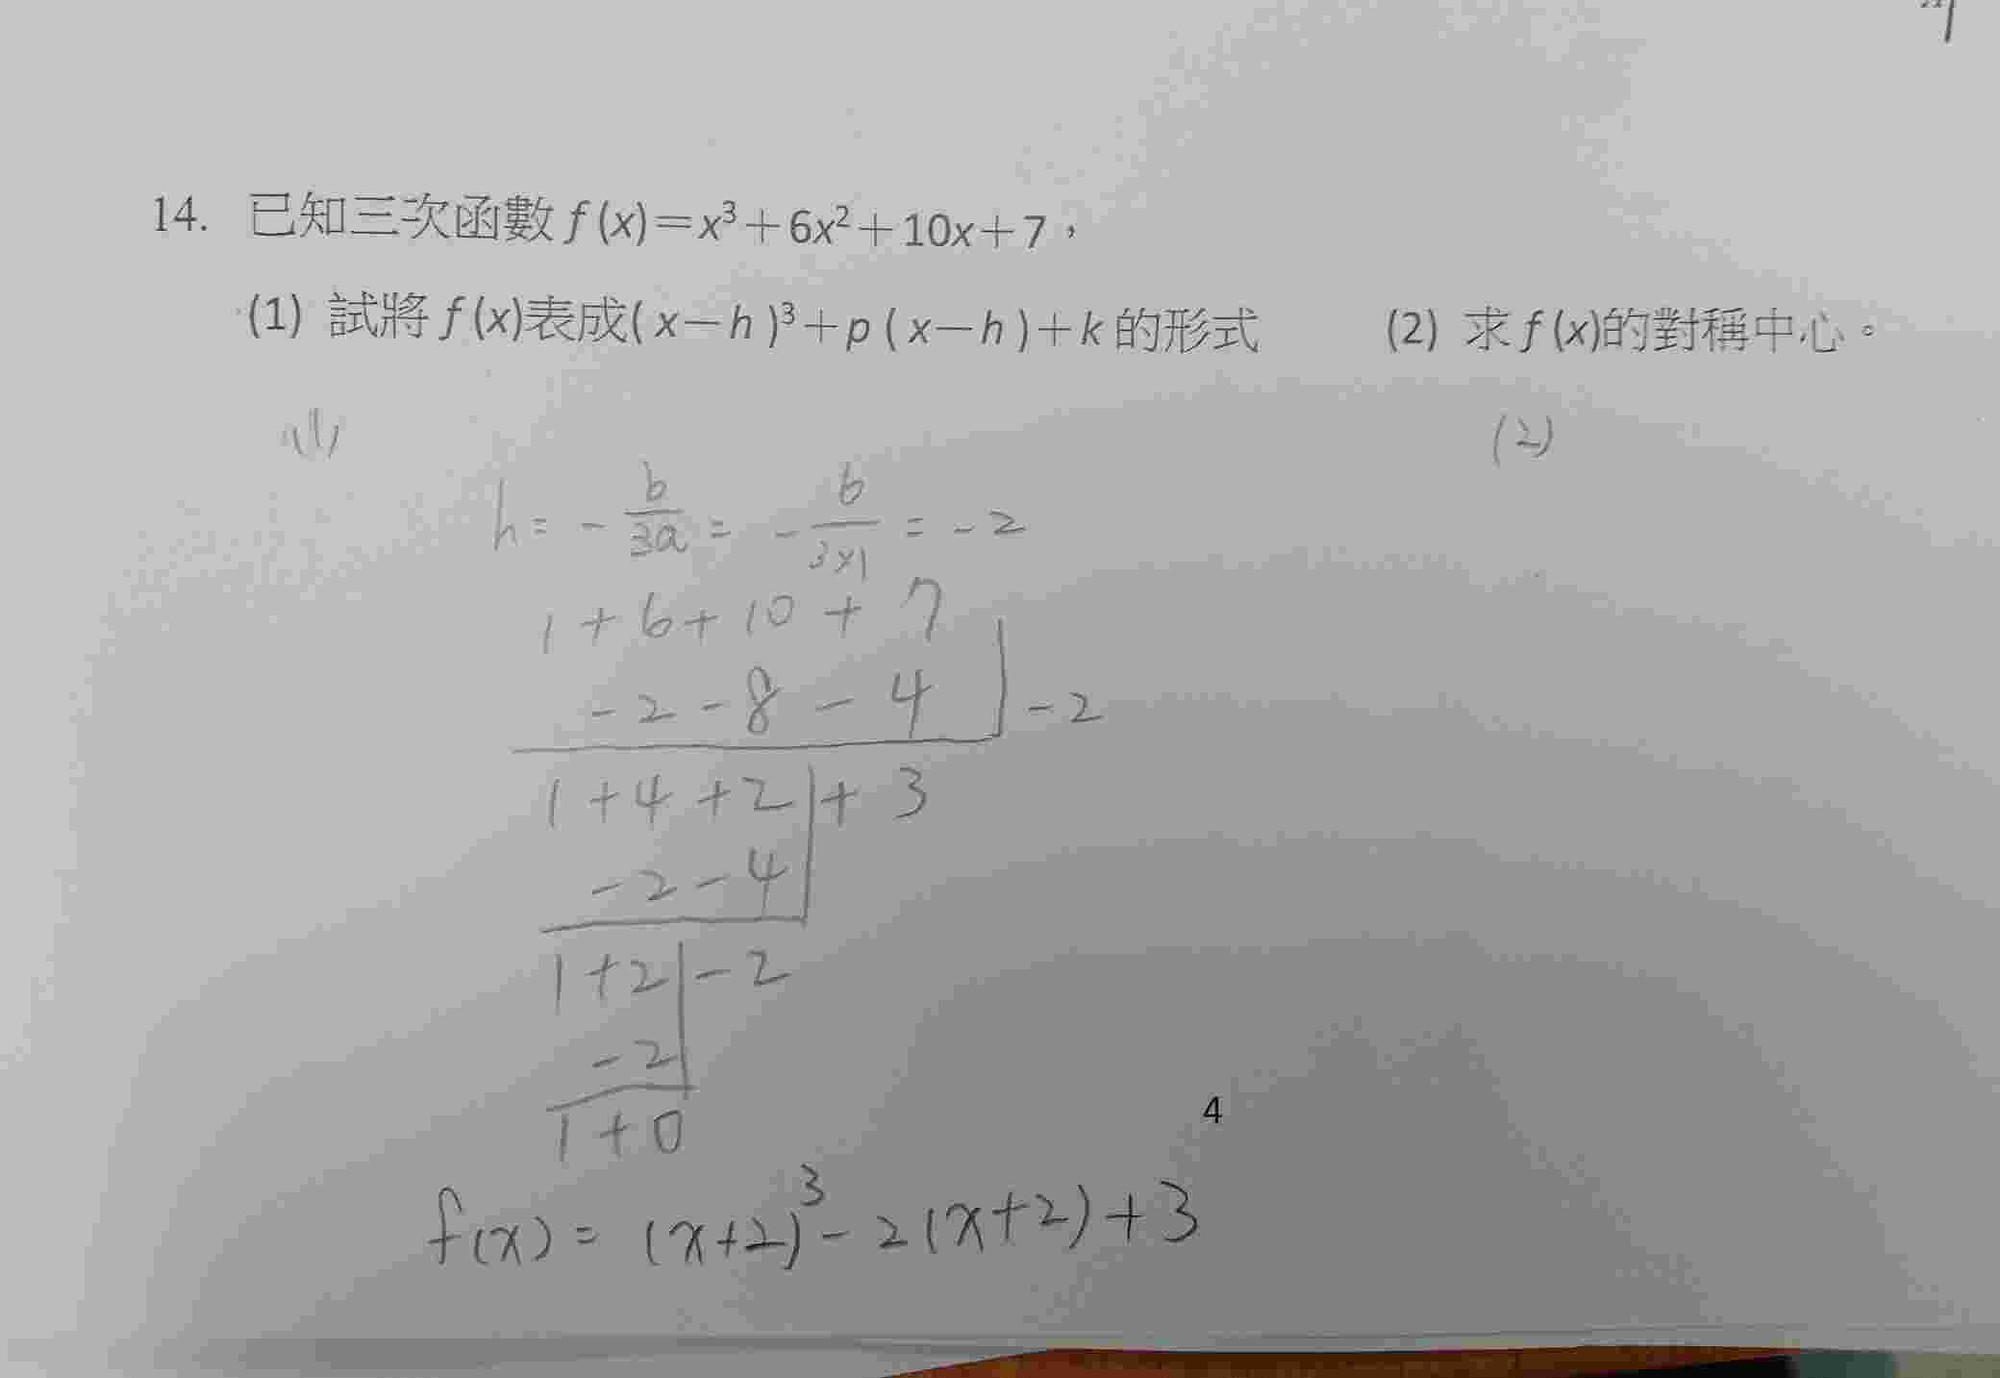 14. 已知三次函數 f (x)＝x³＋6x²＋10x＋7，
(1) 試將 f (x)表成( x－h )³＋p ( x－h )＋k 的形式 (2) 求 f (x)的對稱中心。
(1) (2)
h = - b/3a = - 6/3×1 = -2
1 + 6 + 10 + 7
-2 - 8 - 4 | -2
1 + 4 + 2 | + 3
-2 - 4
1 + 2 | - 2
-2
1 + 0
4
f(x) = (x+2)³ - 2(x+2) + 3